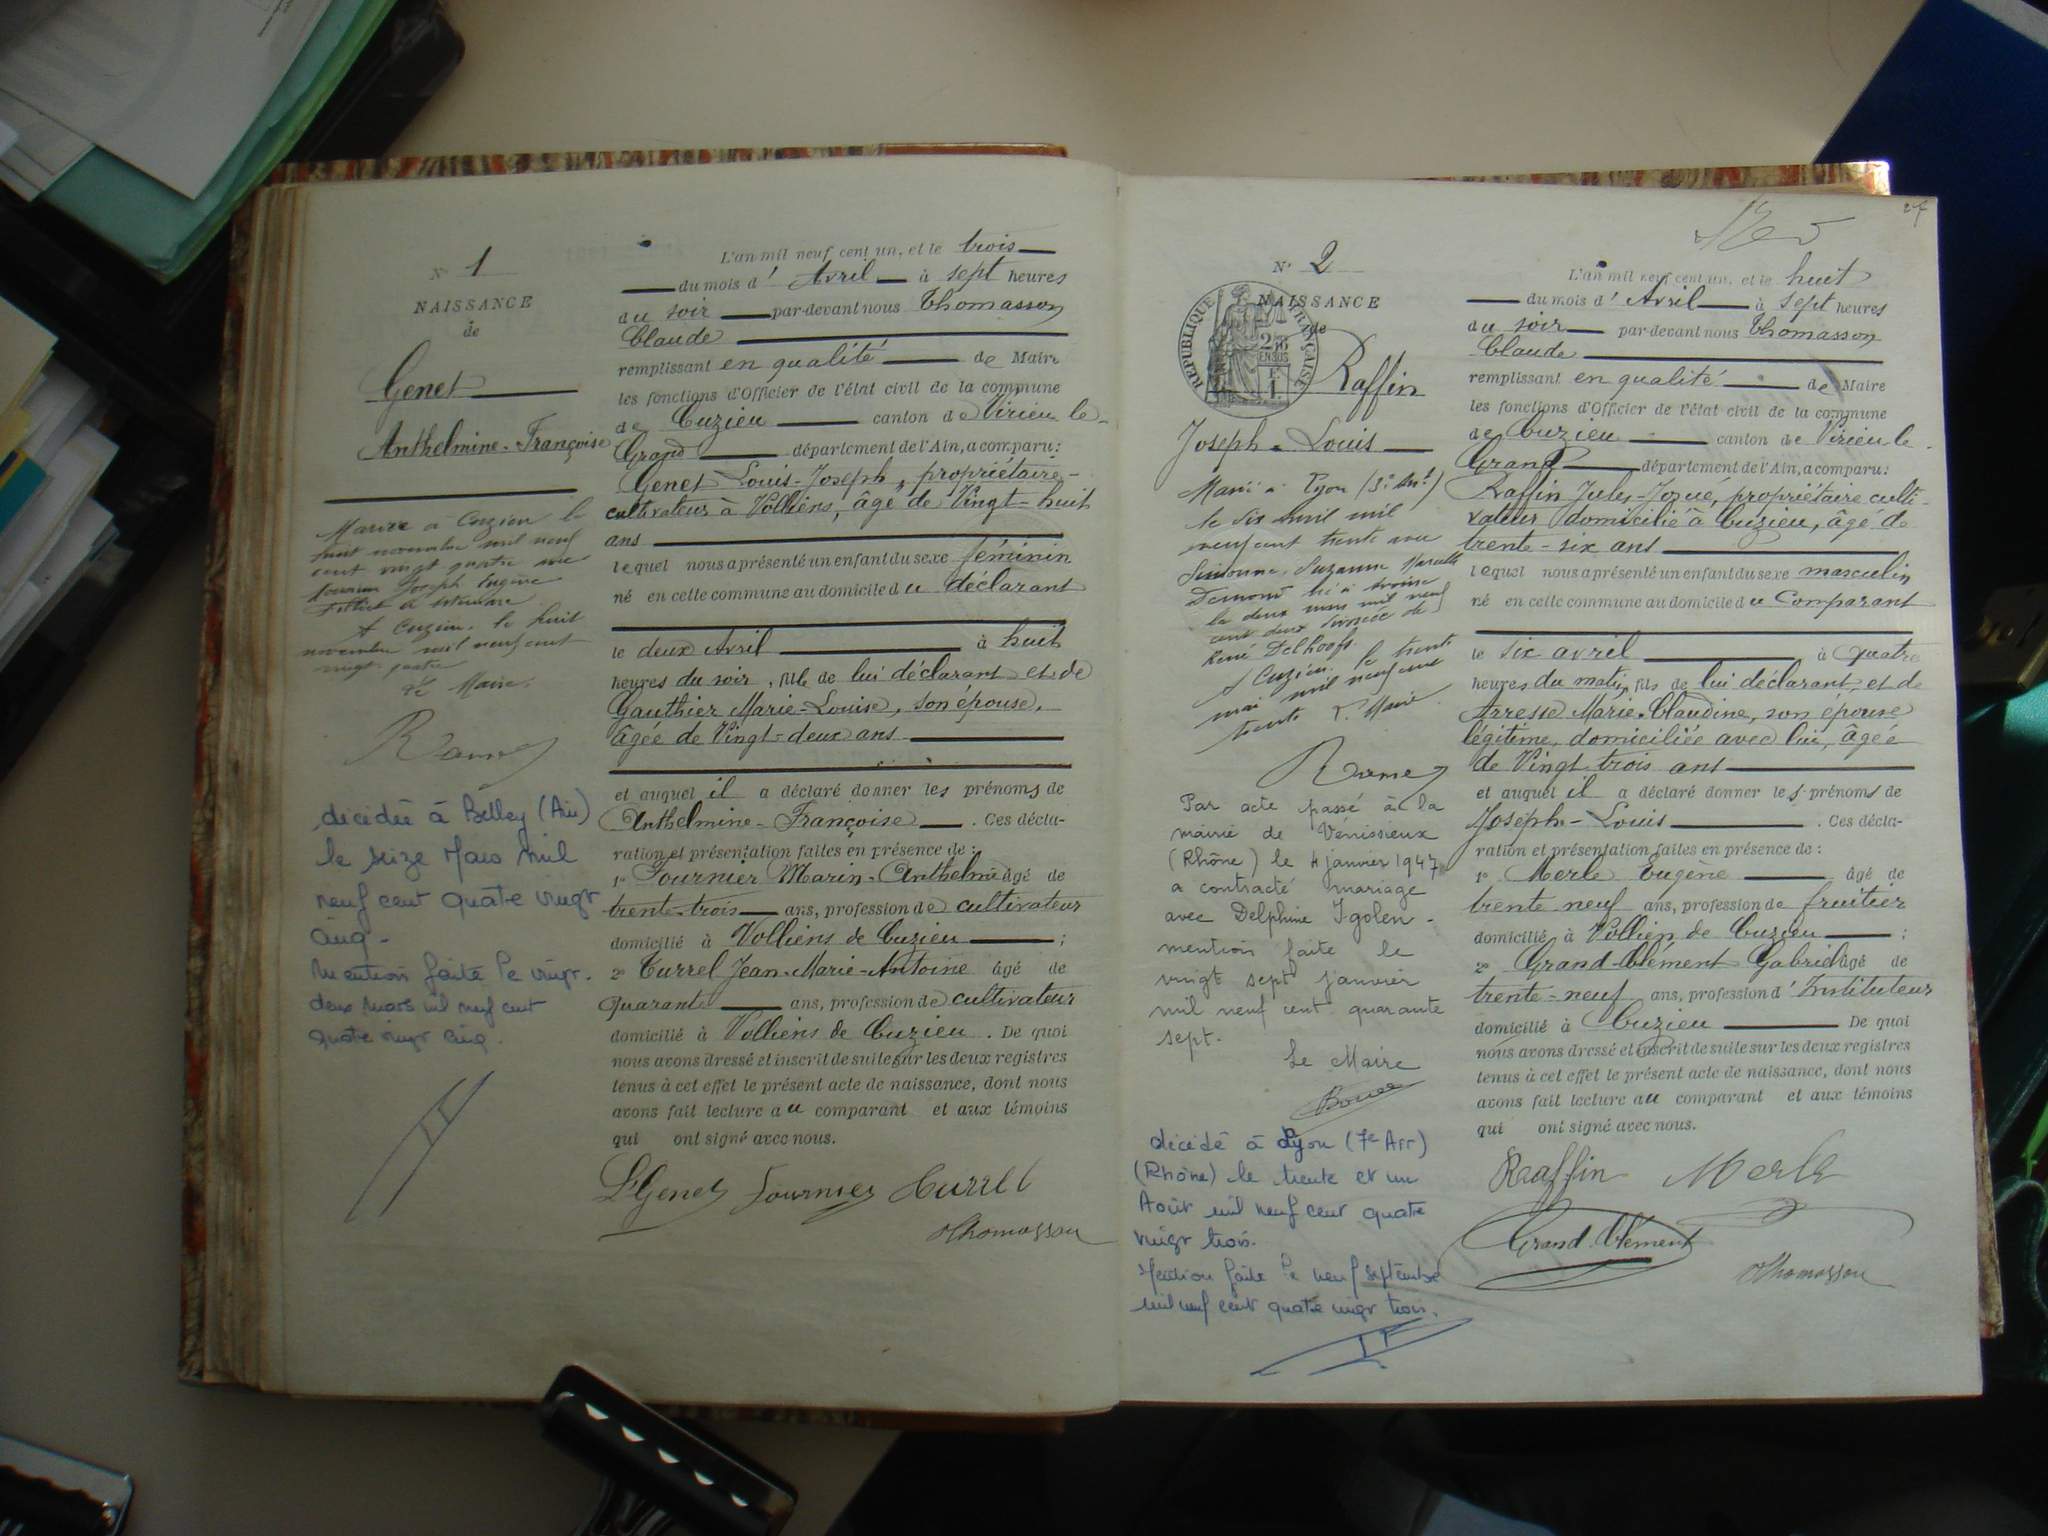 N° 1
NAISSANCE
de
Genet
Anthelmine-Françoise
Mariée à Cuzieu le
huit novembre mil neuf
cent vingt quatre avec
Joseph Eugène
A Cuzieu, le huit
novembre mil neuf cent
vingt quatre
Le Maire.
décédée à Belley (Ain)
le seize Mars mil
neuf cent quatre vingt
cinq.
Mention faite le vingt-
deux mars mil neuf cent
quatre vingt cinq.
L'an mil neuf cent un, et le trois
du mois d'Avril à sept heures
du soir par-devant nous Thomasson
Claude
remplissant en qualité de Maire
les fonctions d'Officier de l'état civil de la commune
de Cuzieu canton de Virieu-le-
Grand département de l'Ain, a comparu:
Genet Louis-Joseph, propriétaire-
cultivateur à Volliens, âgé de Vingt-huit
ans
lequel nous a présenté un enfant du sexe féminin
né en cette commune au domicile du déclarant
le deux Avril à huit
heures du soir, fille de lui déclarant et de
Gauthier Marie-Louise, son épouse,
âgée de Vingt-deux ans
et auquel il a déclaré donner les prénoms de
Anthelmine-Françoise. Ces décla-
ration et présentation faites en présence de:
1° Fournier Marin-Anthelme âgé de
trente-trois ans, profession de cultivateur
domicilié à Volliens de Cuzieu;
2° Turrel Jean-Marie-Antoine âgé de
quarante ans, profession de cultivateur
domicilié à Volliens de Cuzieu. De quoi
nous avons dressé et inscrit de suite sur les deux registres
tenus à cet effet le présent acte de naissance, dont nous
avons fait lecture au comparant et aux témoins
qui ont signé avec nous.
L Genet Fournier Turrel
Thomasson
27
N° 2
NAISSANCE
de
RÉPUBLIQUE FRANÇAISE
Raffin
Joseph-Louis
Marié à Lyon (3e Arrt)
le six avril mil
neuf cent trente avec
Simonne, Suzanne Marcelle
le deux mars mil neuf
cent deux divorcée de
René Delhoofs
A Cuzieu, le trente
mai mil neuf cent
trente L. Maire
Par acte passé à la
mairie de Vénissieux
(Rhône) le 4 janvier 1947
a contracté mariage
avec Delphine Igolen.
mention faite le
vingt sept janvier
mil neuf cent quarante
sept.
Le Maire
décédé à Lyon (7e Arr)
(Rhône) le trente et un
Août mil neuf cent quatre
vingt trois.
Mention faite le neuf septembre
mil neuf cent quatre vingt trois.
L'an mil neuf cent un, et le huit
du mois d'Avril à sept heures
du soir par-devant nous Thomasson
Claude
remplissant en qualité de Maire
les fonctions d'Officier de l'état civil de la commune
de Cuzieu canton de Virieu-le-
Grand département de l'Ain, a comparu:
Raffin Jules-Josué, propriétaire culti-
vateur domicilié à Cuzieu, âgé de
trente-six ans
lequel nous a présenté un enfant du sexe masculin
né en cette commune au domicile du Comparant
le six avril à quatre
heures du matin, fils de lui déclarant, et de
Marie-Claudine, son épouse
légitime, domiciliée avec lui, âgée
de Vingt-trois ans
et auquel il a déclaré donner les prénoms de
Joseph-Louis. Ces décla-
ration et présentation faites en présence de:
1° Merle Eugène âgé de
trente neuf ans, profession de fruitier
domicilié à Vollien de Cuzieu;
2° Grand-Clément Gabriel âgé de
trente-neuf ans, profession d'Instituteur
domicilié à Cuzieu De quoi
nous avons dressé et inscrit de suite sur les deux registres
tenus à cet effet le présent acte de naissance, dont nous
avons fait lecture au comparant et aux témoins
qui ont signé avec nous.
Raffin Merle
Grand-Clément
Thomasson